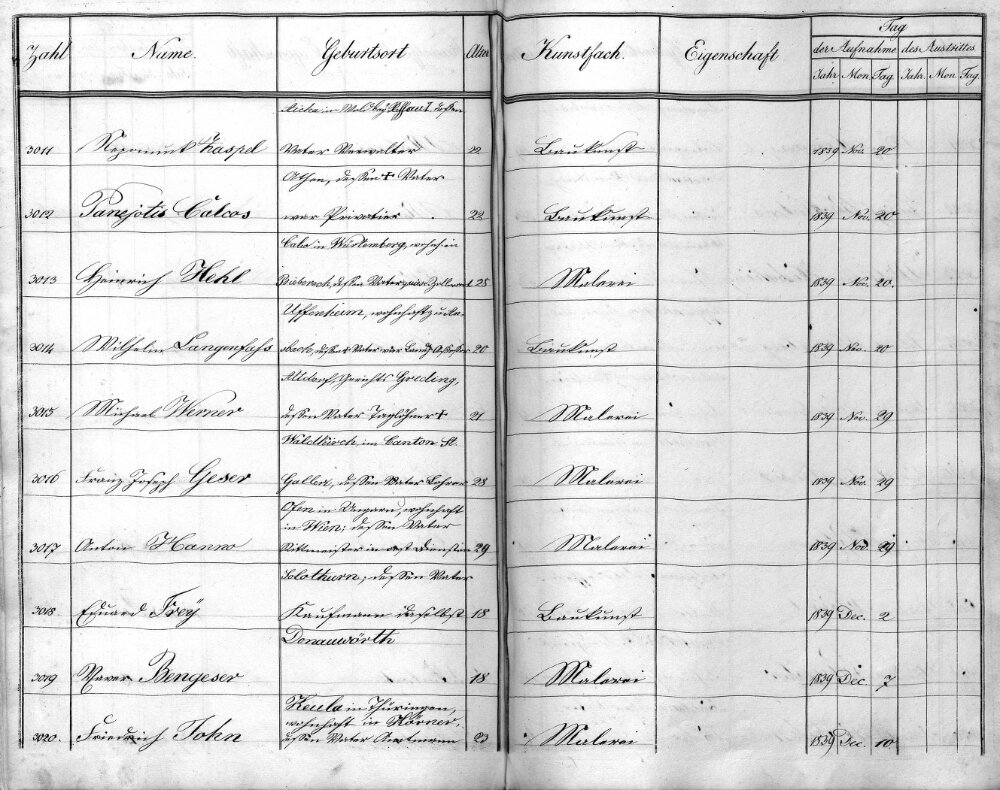 Zahl Name. Geburtsort Alter Kunstfach. Eigenschaft Tag
der Aufnahme des Austrittes
Jahr Mon. Tag Jahr. Mon. Tag.
3011 Nepomuk Kaspel Vater Verwalter 22 Baukunst 1839 Nov. 20
Athen, dessen † Vater
3012 Panejotis Calcos war Privatier 22 Baukunst 1839 Nov. 20
in Würtemberg, wohnh. in
3013 Heinrich Hehl dessen Vater 25 Malerei 1839 Nov. 20.
Uffenheim, wohnhaft zu
3014 Wilhelm Langenfass dessen † Vater war 20 Baukunst 1839 Nov. 20
Altdorf, Gerichts Greding,
3015 Michael Werner dessen Vater Taglöhner † 21 Malerei 1839 Nov. 29
Waldkirch, im Canton St.
3016 Franz Joseph Geser Gallen, dessen Vater Lehrer 28 Malerei 1839 Nov. 29
Ofen in Ungarn, wohnhaft
in Wien; dessen Vater
3017 Anton Hanno Rittmeister in öst. Diensten 29 Malerei 1839 Nov. 29
Solothurn; dessen Vater
3018 Eduard Frey Kaufmann daselbst 18 Baukunst 1839 Dec. 2
Donauwörth
3019 Xaver Bengeser 18 Malerei 1839 Dec. 7
Keula in Thüringen,
wohnhaft in Körner,
3020 Friedrich John dessen Vater Amtmann 23 Malerei 1839 Dec. 10